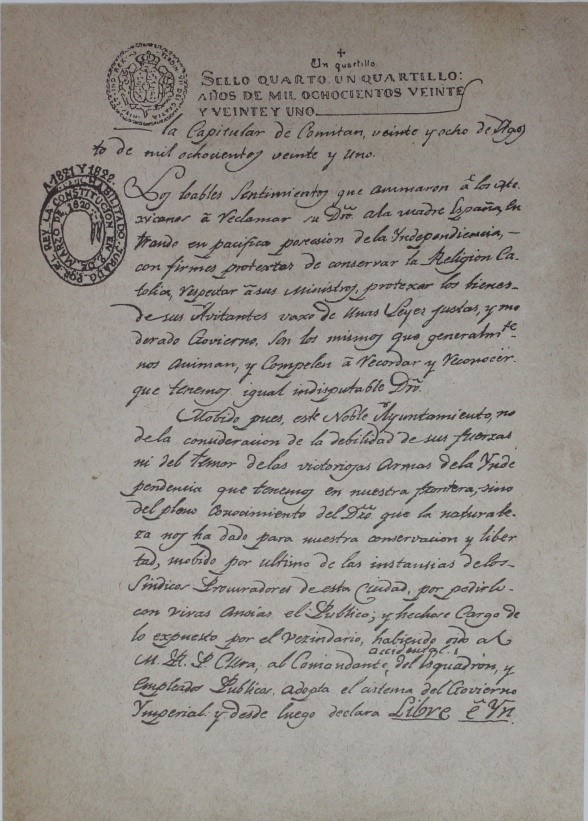 Un quartillo
SELLO QUARTO. UN QUARTILLO:
AÑOS DE MIL OCHOCIENTOS VEINTE
Y VEINTE Y UNO.
A 1821 Y 1822.
HABILITADO, JURADA POR EL REY LA CONSTITUCION EN 9 DE
MARZO DE 1820
la Capitular de Comitan, veinte y ocho de Agos
to de mil ochocientos veinte y uno.
Los loables Sentimientos que animaron â los
xicanos â Reclamar su Dro. ala madre España, en
trando en pacifica posecion de la Yndependencia, –
con firmes protextas de conservar la Religion Ca
tolica, respectar âsus Ministros, protexer los bienes–
de sus Avitantes vaxo de unas Leyes justas, y mo
derado Govierno, son los mismos que generalmte.
nos animan, y Compelen â Recordar y Reconocer.
que tenemos igual indisputable Dro.
Mobido pues, este Noble Ayuntamiento, no
de la consideracion de la debilidad de sus fuerzas
ni del temor de las victoriosas Armas de la Ynde
pendencia que tenemos en nuestra frontera, sino
del pleno Conocimiento del Dro. que la naturale-
za nos ha dado para nuestra conservacion y liber
tad, mobido por ultimo de las instansias de los–
Sindicos Procuradores de esta Ciudad, por pedirlo–
con vivas Ancias el Publico; y hechose Cargo de
lo expuesto por el Vezindario, habiendo oido al
M. R. P. Cura, al Comandante accidental del Esquadron, y
Empleados Publicos, adopta el sistema del Govierno
Ymperial: y desde luego declara Libre ê Yn